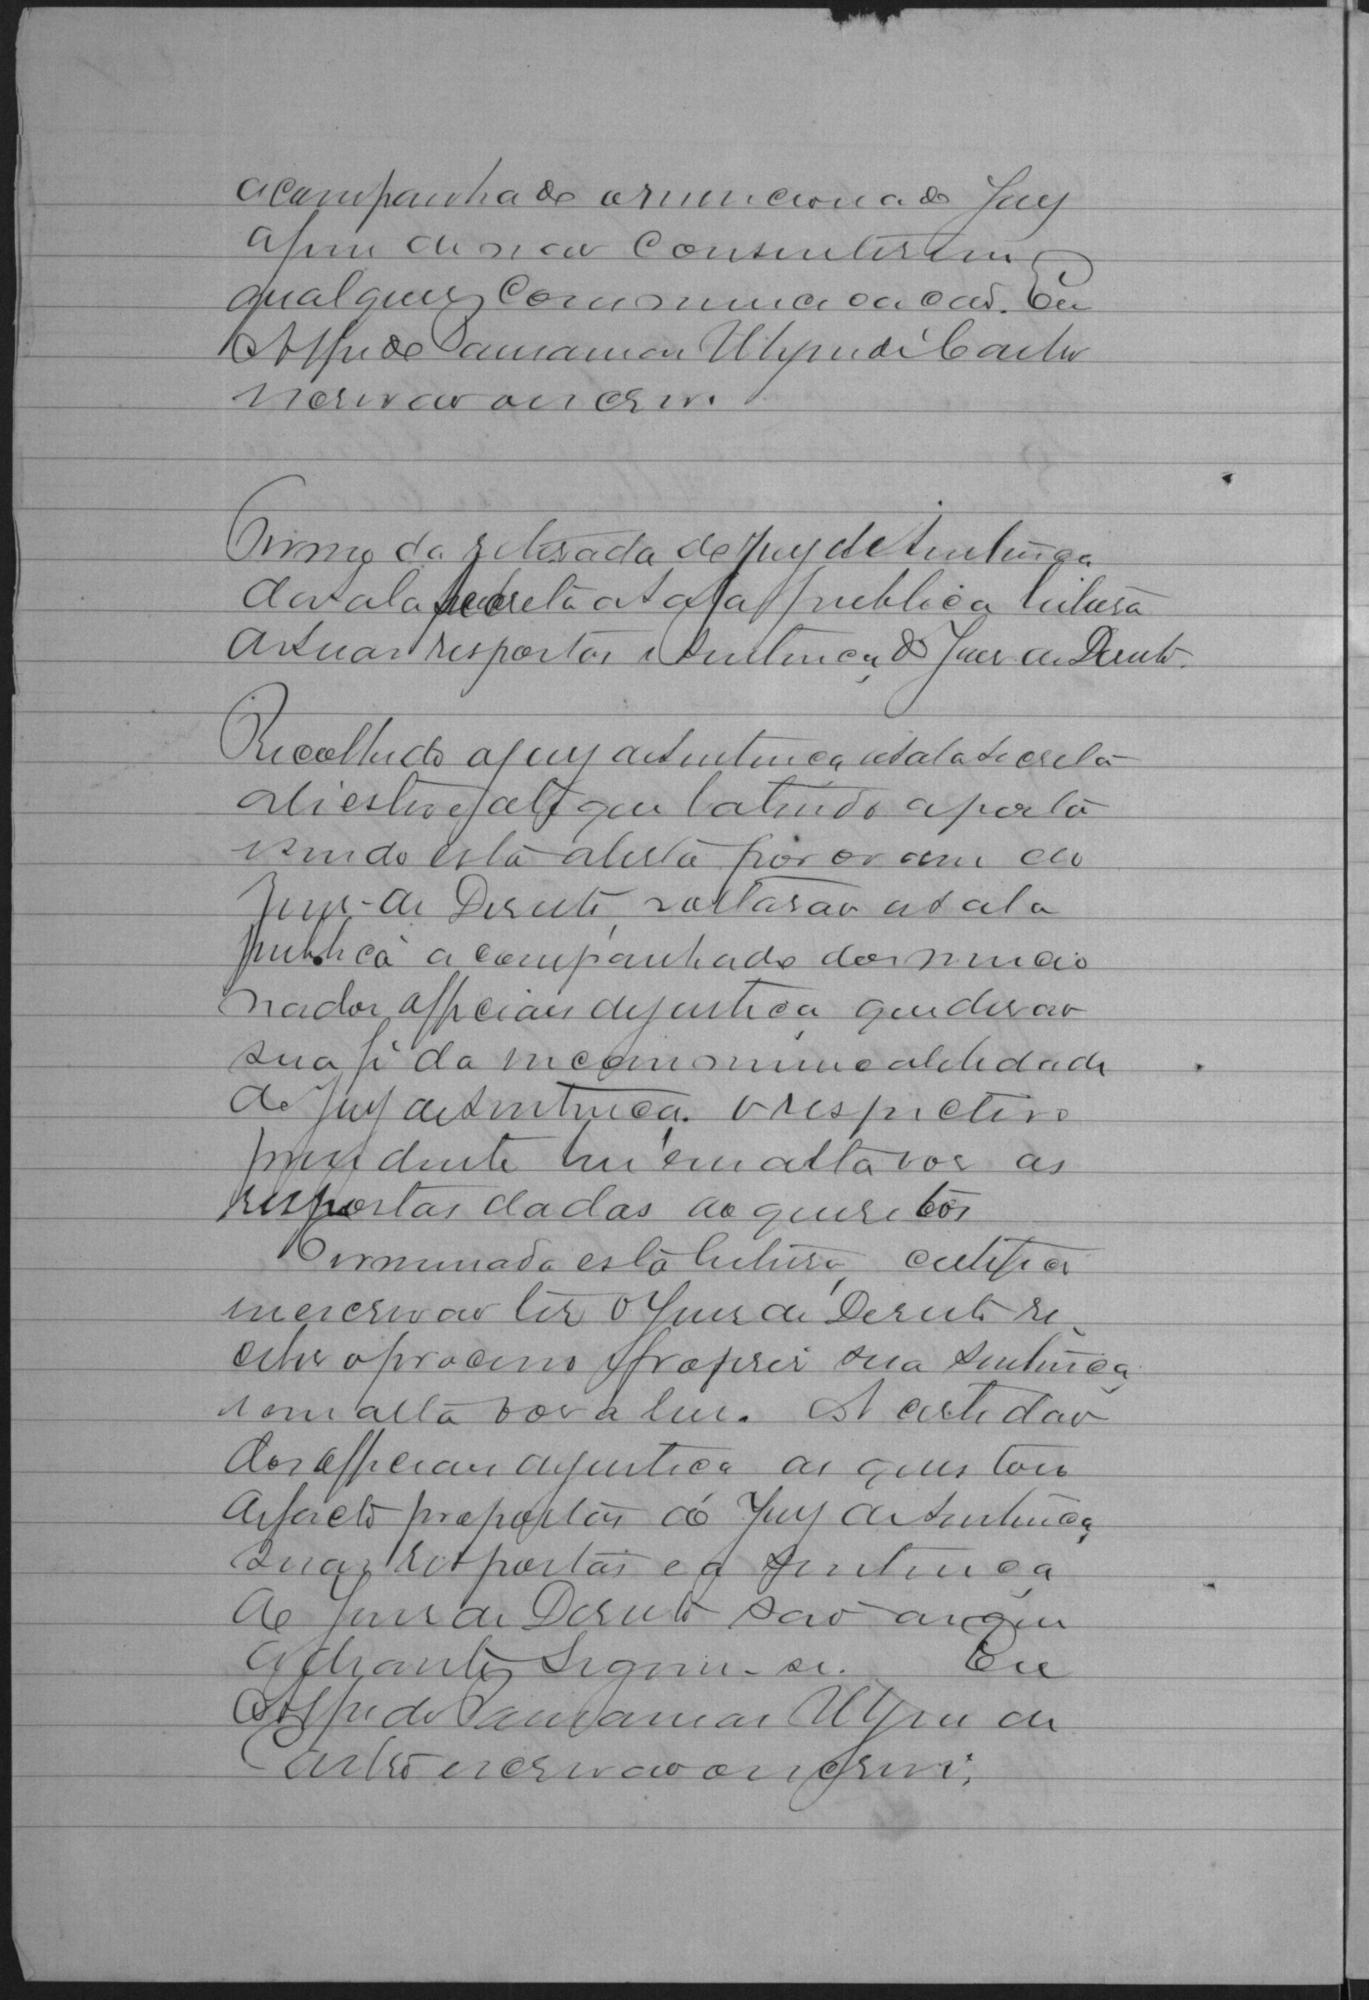 acompanhado o mencionado Jury
afim de não consentirem
qualquer communicação. Eu
Alfredo Utym de Castro
escrivão o escrevi.
Termo da retirada do Jury de Sentença
da sala secreta a sala publica leitura
de suas respostas e sentença do Juiz de Direito.
Recolhido o Jury de Sentença a sala secreta
ali esteve até que batendo a porta
sendo esta aberta por ordem do
Juiz de Direito, voltarão a sala
publica acompanhado dos mencio
nados officiaes de justiça que derão
sua fé da incommunicabilidade
do Jury de Sentença. O respectivo
presidente leu em alta voz as
respostas dadas ao quesitos
Terminada esta leitura, certifica
me escrivão ter o Juiz de Direito re
cebe o processo e proferir sua sentença
e em alta voz a leu. A certidão
dos officiaes de justiça as questões
de facto propostas ao Jury de Sentença
suas respostas e a sentença
do Juiz de Direito são as que
adiante seguem-se. Eu
Alfredo Utym de
Castro escrivão o escrevi.